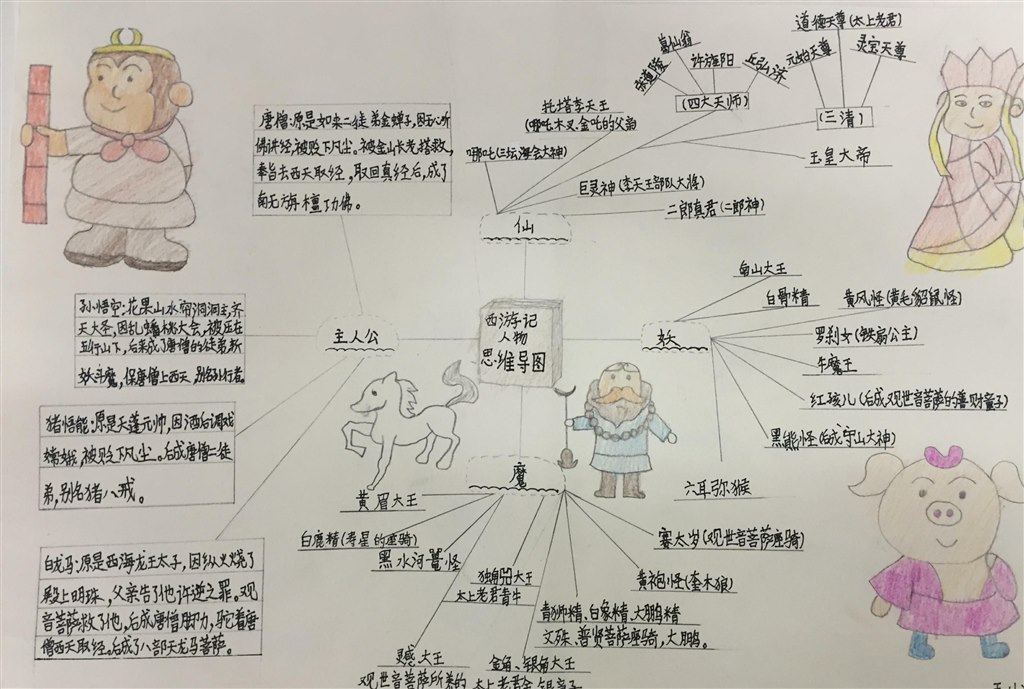 道德天尊(太上老君)
元始天尊
灵宝天尊
(三清)
葛仙翁
许旌阳
丘弘济
张道陵
(四大天师)
玉皇大帝
托塔李天王
(哪吒木叉、金吒的父亲
哪吒(三坛海会大神)
巨灵神(李天王部队大将)
二郎真君(二郎神)
仙
唐僧:原是如来二徒弟金蝉子,因无心听
佛讲经,被贬下凡尘。被金山长老搭救,
奉旨去西天取经,取回真经后,成了
南无旃檀功佛。
孙悟空:花果山水帘洞洞主,齐
天大圣,因乱蟠桃大会,被压在
五行山下,后来成了唐僧的徒弟,斩
妖斗魔,保唐僧上西天,别名孙行者。
主人公
西游记
人物
思维导图
妖
白骨精
黄风怪(黄毛貂鼠怪)
罗刹女(铁扇公主)
牛魔王
红孩儿(后成观世音菩萨的善财童子)
黑熊怪(后成守山大神)
六耳弥猴
猪悟能:原是天蓬元帅,因酒后调戏
嫦娥,被贬下凡尘。后成唐僧二徒
弟,别名猪八戒。
白龙马:原是西海龙王太子,因纵火烧了
殿上明珠,父亲告了他忤逆之罪。观
音菩萨救了他,后成唐僧脚力,驼着唐
僧西天取经。后成了八部天龙马菩萨。
魔
黄眉大王
白鹿精(寿星的座骑)
黑水河鼍怪
独角兕大王
太上老君青牛
灵感大王
观世音菩萨所养的
金角、银角大王
太上老君金、银童子
青狮精、白象精、大鹏精
文殊、普贤菩萨座骑,大鹏。
黄袍怪(奎木狼)
赛太岁(观世音菩萨座骑)